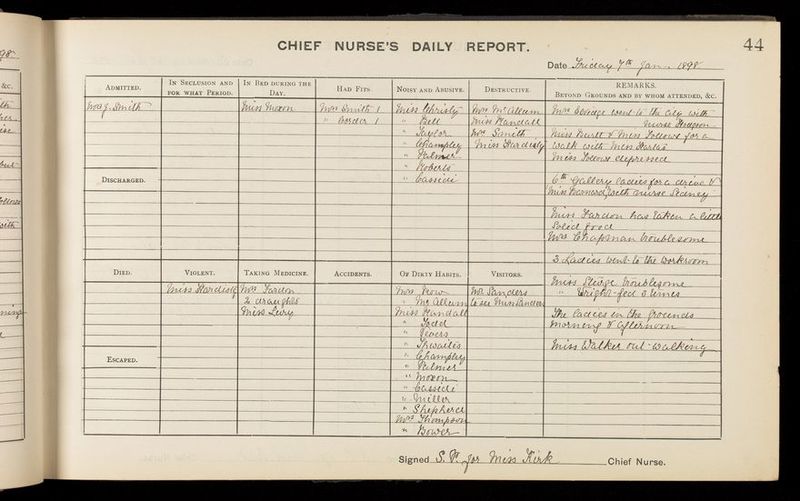 CHIEF NURSE'S DAILY REPORT.
44
Date Friday 7th Jan. 1898
ADMITTED.
IN SECLUSION AND FOR WHAT PERIOD.
IN BED DURING THE DAY.
HAD FITS
NOISY AND ABUSIVE.
DESTRUCTIVE.
REMARKS.
BEYOND GROUNDS AND BY WHOM ATTENDED, &C.
Smith
Miss Moxon
Mrs Smith 1
" 1
Miss Christy
" Bell
" Taylor
" Champley
" Palmer
" Roberts
" Cassidi
Mrs McAllum
Miss Randall
Mrs Smith
Miss Hardesty
Mrs went to the City with
Nurse
Miss Burtt & Miss Follows for a
walk with Miss
Miss Follows depressed
6th Gallery Ladies for a drive &
Miss Barnard with nurse Sidney
Miss Fardon has taken a little
Solid food
Mrs Chapman troublesome
3 Ladies went to the Workroom
DISCHARGED.
DIED.
VIOLENT.
TAKING MEDICINE.
ACCIDENTS.
OF DIRTY HABITS.
VISITORS.
Miss Hardesty
Miss Fardon
2 draughts
Miss Lury
" McAllum
Miss Randall
" Todd
" Jevers
" Thwaites
" Champley
" Palmer
" Moxon
" Cassidi
" Miller
" Shepherd
Mrs Thompson
" Bower
Mr Sanders
to see Miss Sanders
Miss Sturge troublesome
" Wright fed 3 times
The Ladies in the Grounds
morning & afternoon
Miss Walker out walking
ESCAPED.
Signed S. P. for Miss Kirk Chief Nurse.